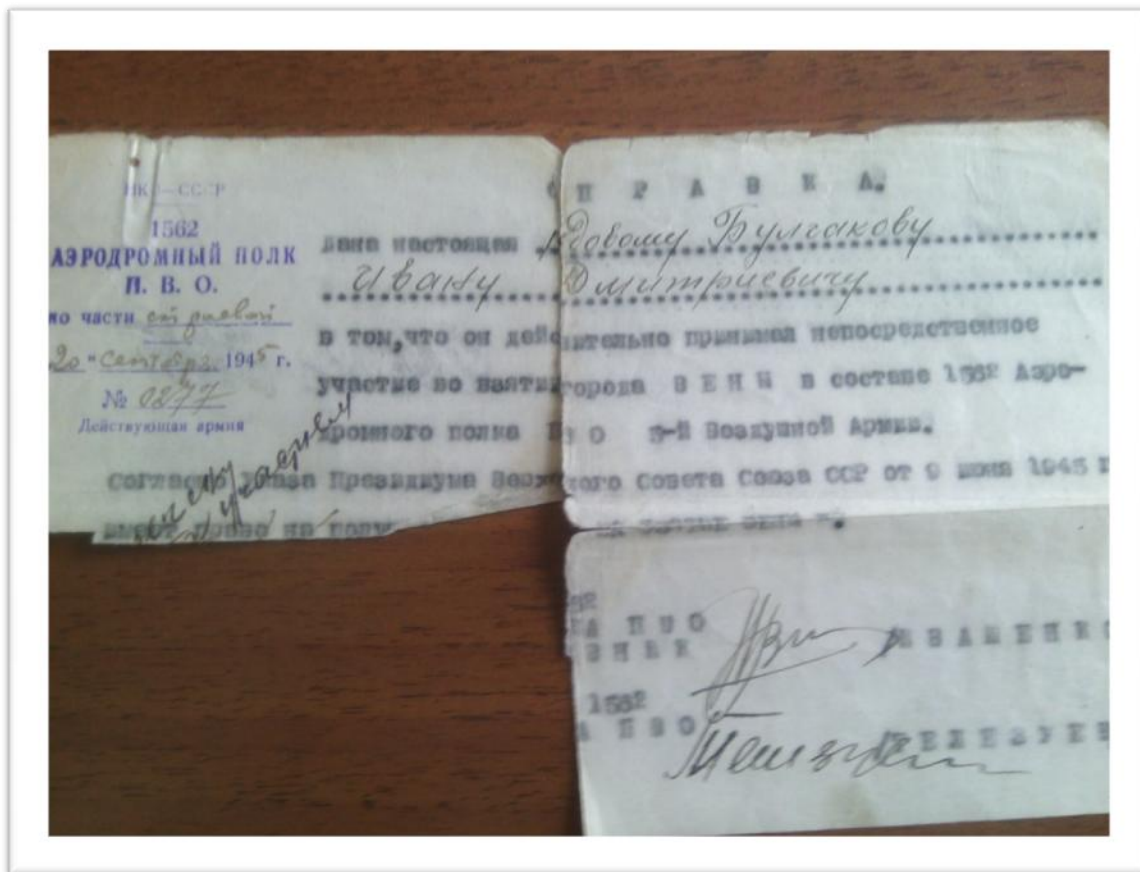 НКО—СССР
1562
АЭРОДРОМНЫЙ ПОЛК
П. В. О.
по части строевой
20 " сентября 1945 г.
№ 0277
Действующая армия
СПРАВКА.
Дана настоящая рядовому Булгакову
Ивану Дмитриевичу
в том, что он действительно принимал непосредственное
участие во взятии города ВЕНЫ в составе 1562 Аэро-
дромного полка ПВО 5-й Воздушной Армии.
Согласно Указа Президиума Верховного Совета Союза ССР от 9 июня 1945 г
имеет право на полу взятие
А ПВО
1562
А ПВО